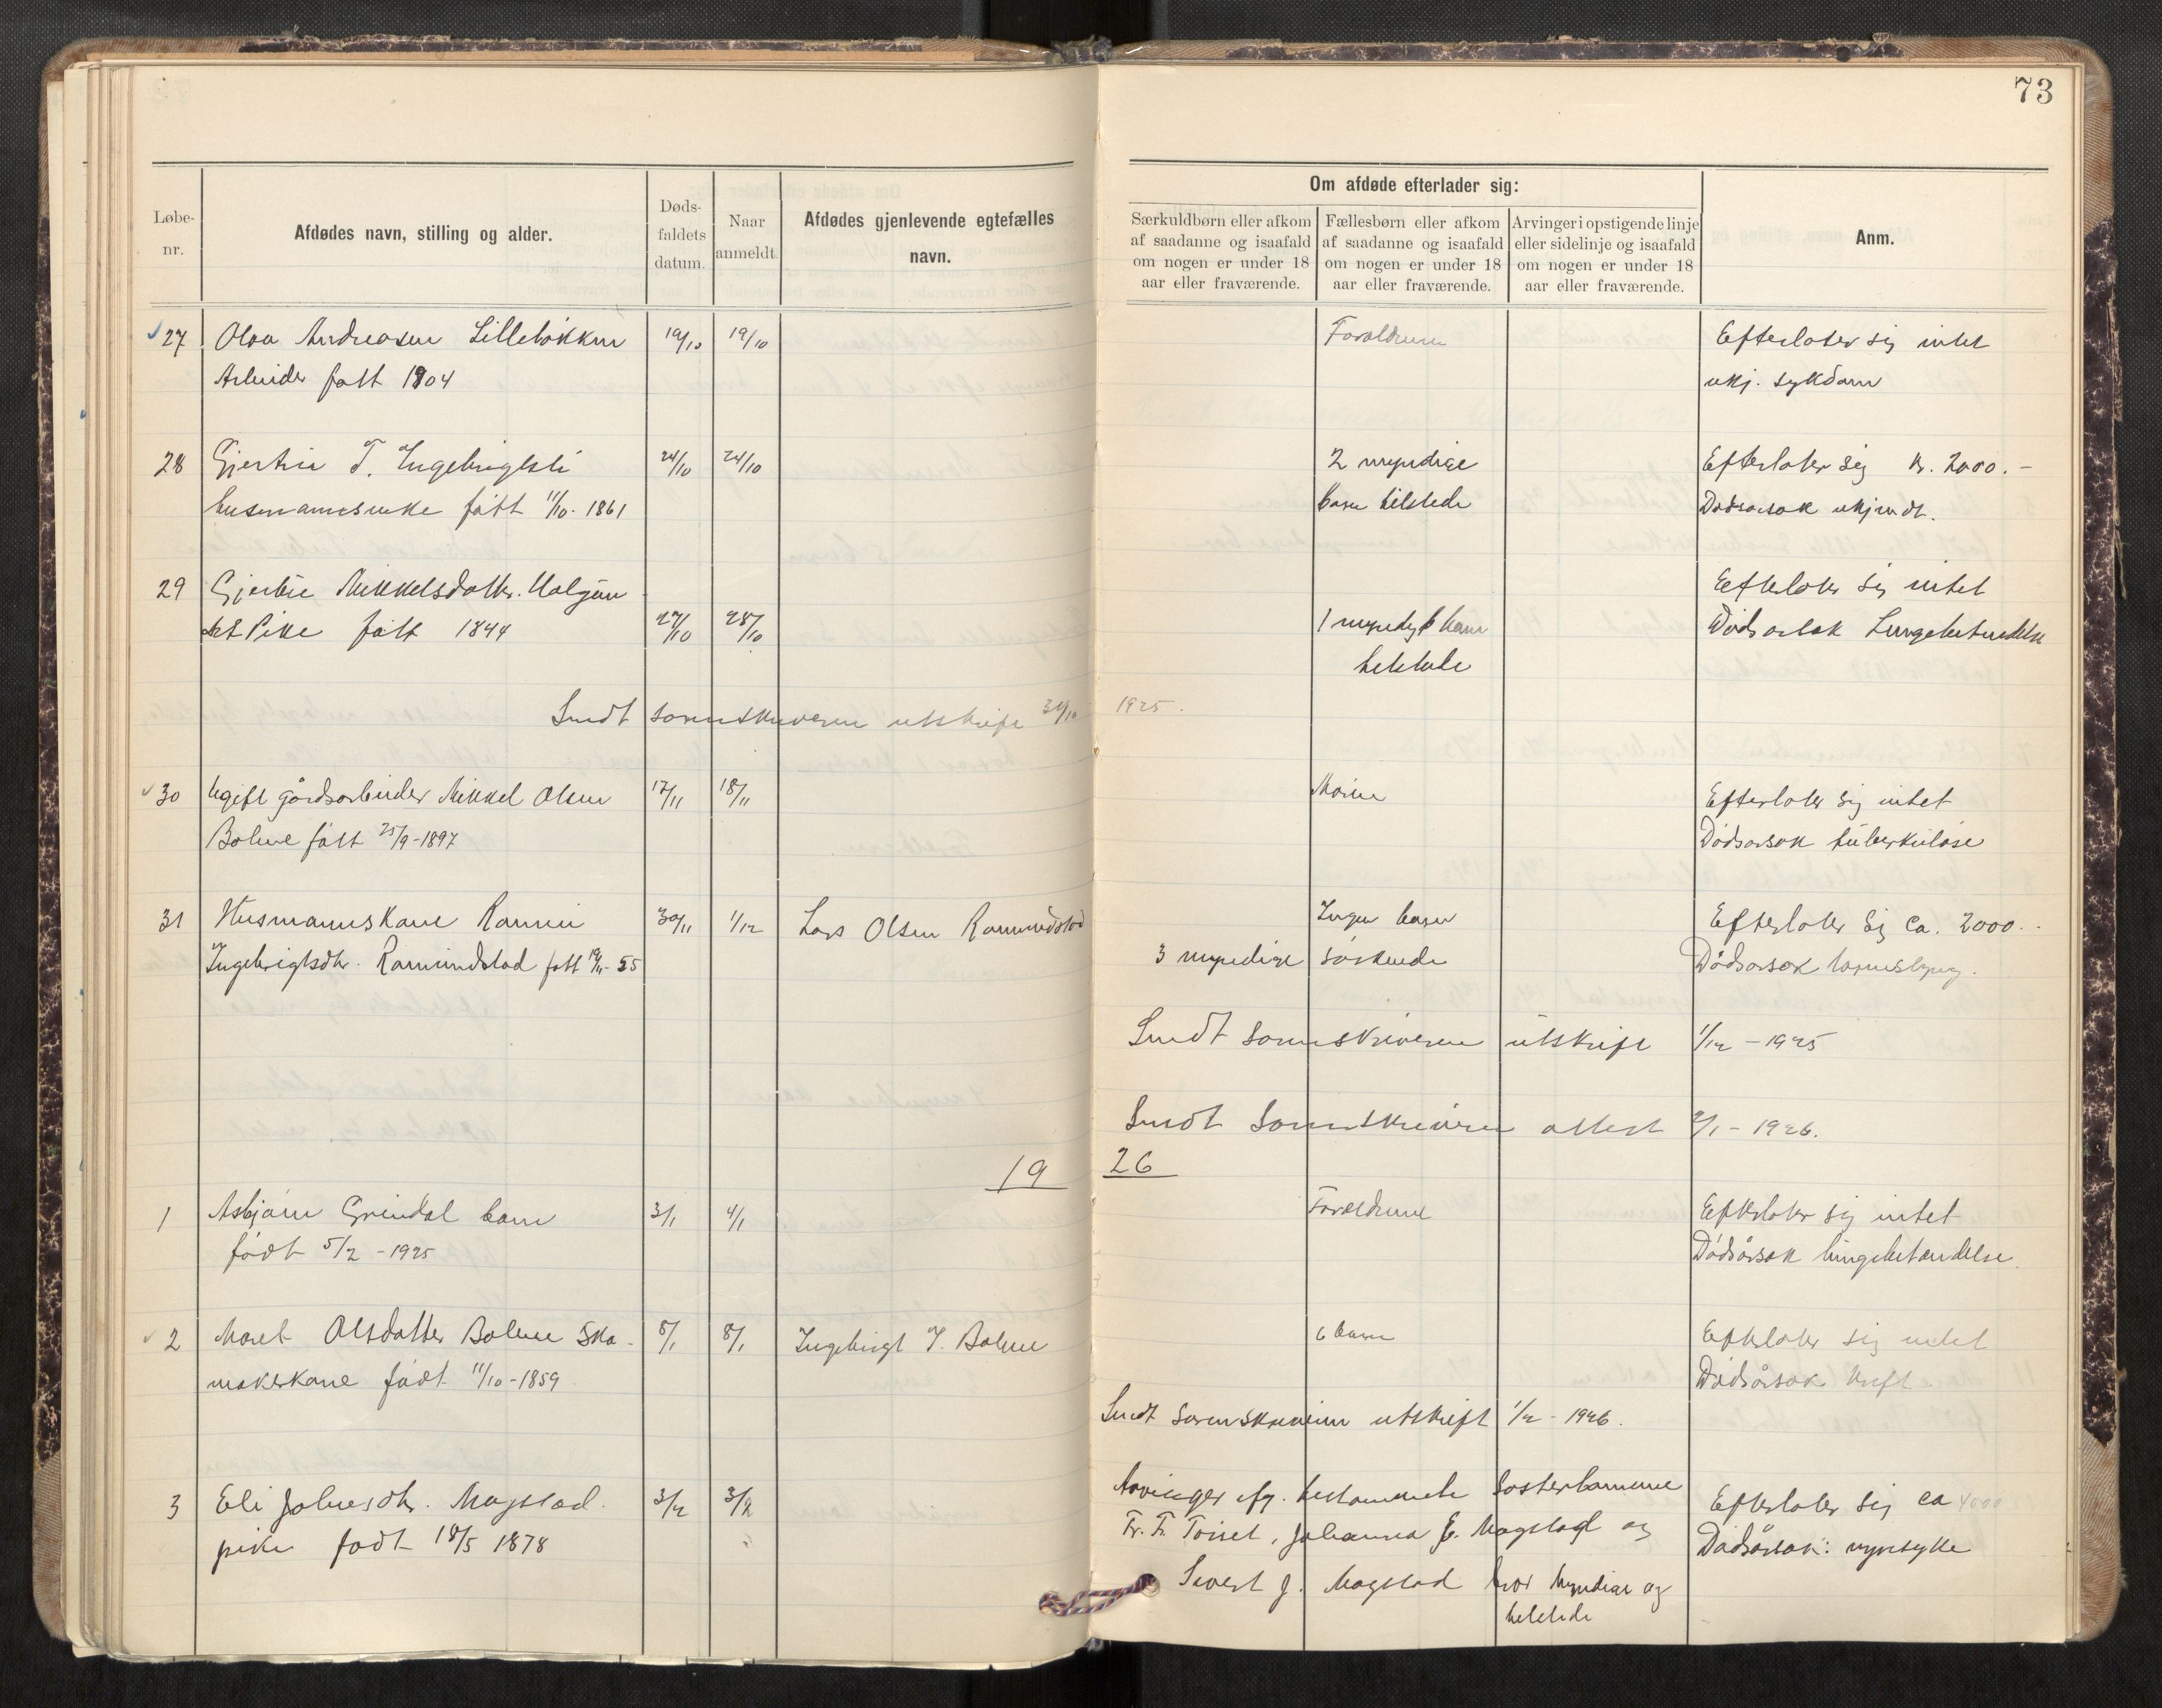 73
Løbe-
nr.
Afdødes navn, stilling og alder.
Døds-
faldets
datum.
Naar
anmeldt.
Afdødes gjenlevende egtefælles
navn.
Om afdøde efterlader sig:
Særkuldbørn eller afkom
af saadanne og isaafald
om nogen er under 18
aar eller fraværende.
Fællesbørn eller afkom
af saadanne og isaafald
om nogen er under 18
aar eller fraværende.
Arvinger i opstigende linje
eller sidelinje og isaafald
om nogen er under 18
aar eller fraværende.
Anm.
27 Olav Andreasen 19/10 19/10 Foreldrene Efterlater sig intet
Arbeider født 1904 ukj. sykdom
28 T. Ingebrigtsli 24/10 24/10 2 myndige Efterlater sig kr. 2000.-
født 11/10. 1861 barn tilstede Dødsårsak ukjendt.
29 Mikkelsdatter. Efterlater sig intet
født 1844 27/10 28/10 1 myndig barn Dødsårsak Lungebetendelse
tilstede
Sendt sorenskriveren utskrift 31/10 1925.
30 Ugift gårdsarbeider Mikkel Olsen 17/11 18/11 Moren Efterlater sig intet
Bolme født 25/9-1897 Dødsårsak tuberkulose
31 Husmannskone 30/11 1/12 Lars Olsen Ramundstad Ingen barn Efterlater sig ca. 2000.-
Ingebrigtsdtr. Ramundstad født 55 3 myndige søskende Dødsårsak
Sendt sorenskriveren utskrift 1/12 - 1925
Sendt sorenskriveren attest 2/1 - 1926.
19 26
1 Asbjørn Grindal barn 3/1 4/1 Foreldrene Efterlater sig intet
født 5/2 - 1925 Dødsårsak lungebetændelse.
2 Marit Olsdatter Bolme Sko- 8/1 8/1 Ingebrigt J. Bolme 6 barn Efterlater sig intet
makerkone født 11/10-1859 Dødsårsak kreft.
Sendt sorenskriveren utskrift 1/2 - 1926.
3 Eli Johnsdtr. Magstad. 3/2 3/2 Arvinger efter testamente søsterbarnene Efterlater sig ca 4000
pike født 18/5 1878 Johanna J. Magstad og Dødsårsak: nyresyke
Sivert J. Magstad myndige og
tilstede